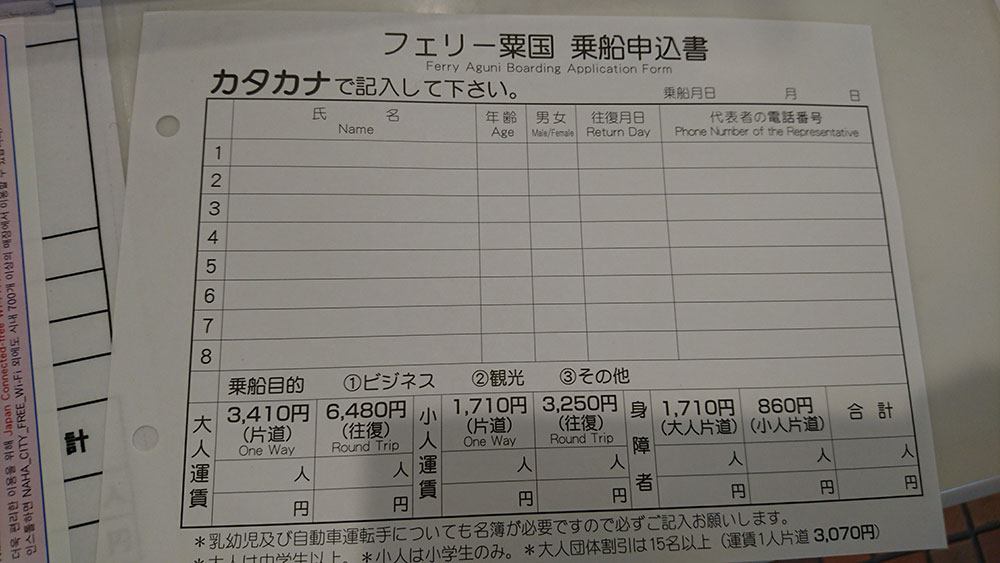 フェリー粟国 乗船申込書
Ferry Aguni Boarding Application Form
カタカナで記入して下さい。
乗船月日 月 日
氏 名 年齢 男女 往復月日 代表者の電話番号
Name Age Male/Female Return Day Phone Number of the Representative
1
2
3
4
5
6
7
8
乗船目的 ①ビジネス ②観光 ③その他
大人運賃 3,410円 6,480円 小人運賃 1,710円 3,250円 身障者 1,710円 860円 合計
(片道) (往復) (片道) (往復) (大人片道) (小人片道)
One Way Round Trip One Way Round Trip
人 人 人 人 人 人 人
円 円 円 円 円 円 円
*乳幼児及び自動車運転手についても名簿が必要ですので必ずご記入お願いします。
*大人は中学生以上。 *小人は小学生のみ。 *大人団体割引は15名以上 (運賃1人片道 3,070円)
計
더욱 편리한 이용을 위해 Japan Connected-free
인스톨하면 NAHA_CITY_FREE_Wi-Fi 외에도 시내 700개 이상의 매장에서 이용할 수